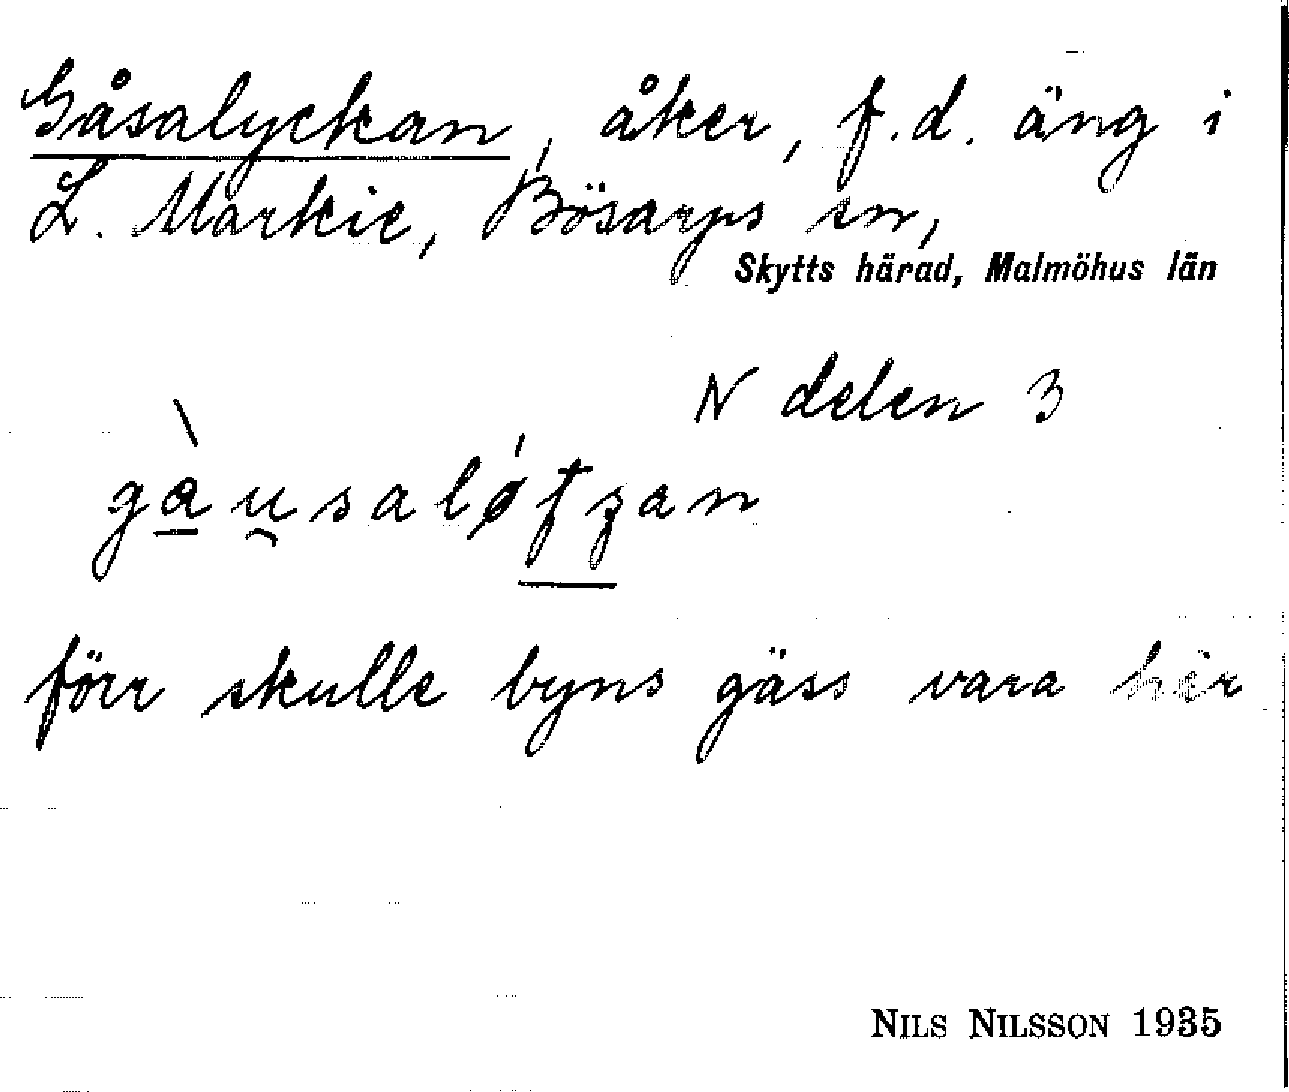 Gåsalyckan, åker, f.d. äng i
L. Markie, Bösarps sn,
Skytts härad, Malmöhus län
N delen 3
gàu̯salótʒan
förr skulle byns gäss vara här
NILS NILSSON 1935